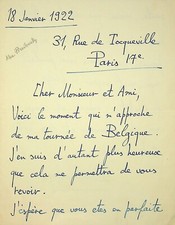 18 Janvier 1922
31, Rue de Tocqueville
Paris 17e
Cher Monsieur et Ami,
Voici le moment qui n'approche
de ma tournée de Belgique.
J'en suis d'autant plus heureuse
que cela me permettra de vous
revoir.
J'espère que vous êtes en parfaite